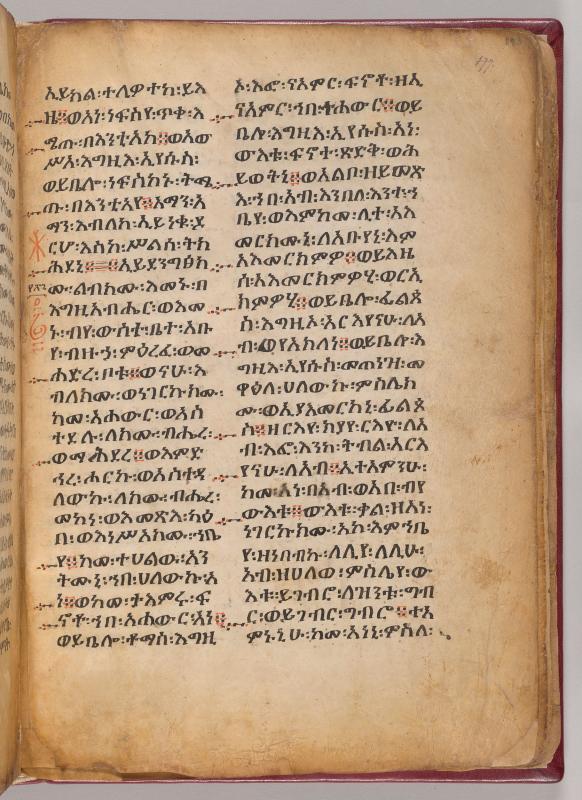 ኢይክል፡ተለዎተከ፡ይእ
ዜ።ወእነ፡ነፍስየ፡ጥቀ፡እ
ሜጡ፡በእንቲአከ።ወአው
ሥአ፡እግዚእ፡ኢየሱስ፡
ወይቤሎ፡ነፍስከኑ፡ትሜ
ጡ፡በእንቲአየ።አማን፡አ
ማን፡እብለከ፡ኢይነቁ፡ዶ
ርሆ፡እስከ፡ሥልሰ፡ትክ
ሕደኒ።አይደንግፅክ
ሙ፡ልብክሙ፡እመኑ፡በ
እግዚአብሔር፡ወእመ
ኑ፡ብየ፡ውስተ፡ቤተ፡አቡ
የ፡ብዙኃ፡ምዕራፈ፡ወመ
ሕድረ፡ቦቱ።ወናሁ፡እ
ብለክሙ፡ወነገርኩክሙ፡
ከመ፡አሐውር፡ወአስ
ተደሉ፡ለክሙ፡ብሔረ፡
ወማሕደረ።ወእምድ
ኅረ፡ሖርኩ፡ወአስተዳ
ለውኩ፡ለክሙ፡ብሔረ፡
መካነ፡ወእመጽእ፡ካዕ
በ፡ወእነሥአክሙ፡ኀቤ
የ።ከመ፡ተሀልው፡አን
ትሙኒ፡ኀበ፡ሀለውኩ፡አ
ነ።ወከመ፡ትእምሩ፡ፍ
ኖቶ፡ኀበ፡አሐውር፡አነ።
ወይቤሎ፡ቶማስ፡እግዚ
ኦ፡እፎ፡ናአምር፡ፍኖቶ፡ዘኢ
ናአምር፡ኀበ፡ተሐውር።ወይ
ቤሎ፡እግዚእ፡ኢየሱስ፡አነ፡
ውእቱ፡ፍኖተ፡ጽድቅ፡ወሕ
ይወትኒ።ወአልቦ፡ዘይመጽ
እ፡ኀበ፡አብ፡እንበለ፡እንተ፡ኀ
ቤየ፡ወእምከመ፡ሊተ፡አእ
መርክሙኒ፡ለአቡየኒ፡እም
አእመርክምዎ።ወይእዜ
ሰ፡አእመርክምዎሂ፡ወርኢ
ክምዎሂ።ወይቤሎ፡ፊልጶ
ስ፡እግዚኦ፡አርእየናሁ፡ለአ
ብ፡ወየአክለነ።ወይቤሎ፡እ
ግዚእ፡ኢየሱስ፡መጠነዝ፡መ
ዋዕለ፡ሀለውኩ፡ምስሌክ
ሙ፡ወኢያእመርከኒ፡ፊልጶ
ስ።ዘርእየ፡ኪያየ፡ርእየ፡ለአ
ብ፡እፎ፡እንከ፡ትብል፡አርእ
የናሁ፡ለአብ።ኢተአምንሁ፡
ከመ፡አነ፡በአብ፡ወአብ፡ብየ
ውእቱ።ውእቱ፡ቃል፡ዘአነ፡
ነገርኩክሙ፡አኮ፡እምኀቤ
የ፡ዘነበብኩ፡ለሊየ፡ለሊሁ፡
አብ፡ዘሀለወ፡ምስሌየ፡ው
እቱ፡ይገብሮ፡ለዝንቱ፡ግብ
ር፡ወይገብር፡ግብሮ።ተአ
ምኑኒሁ፡ከመ፡አነኒ፡ምስለ፡